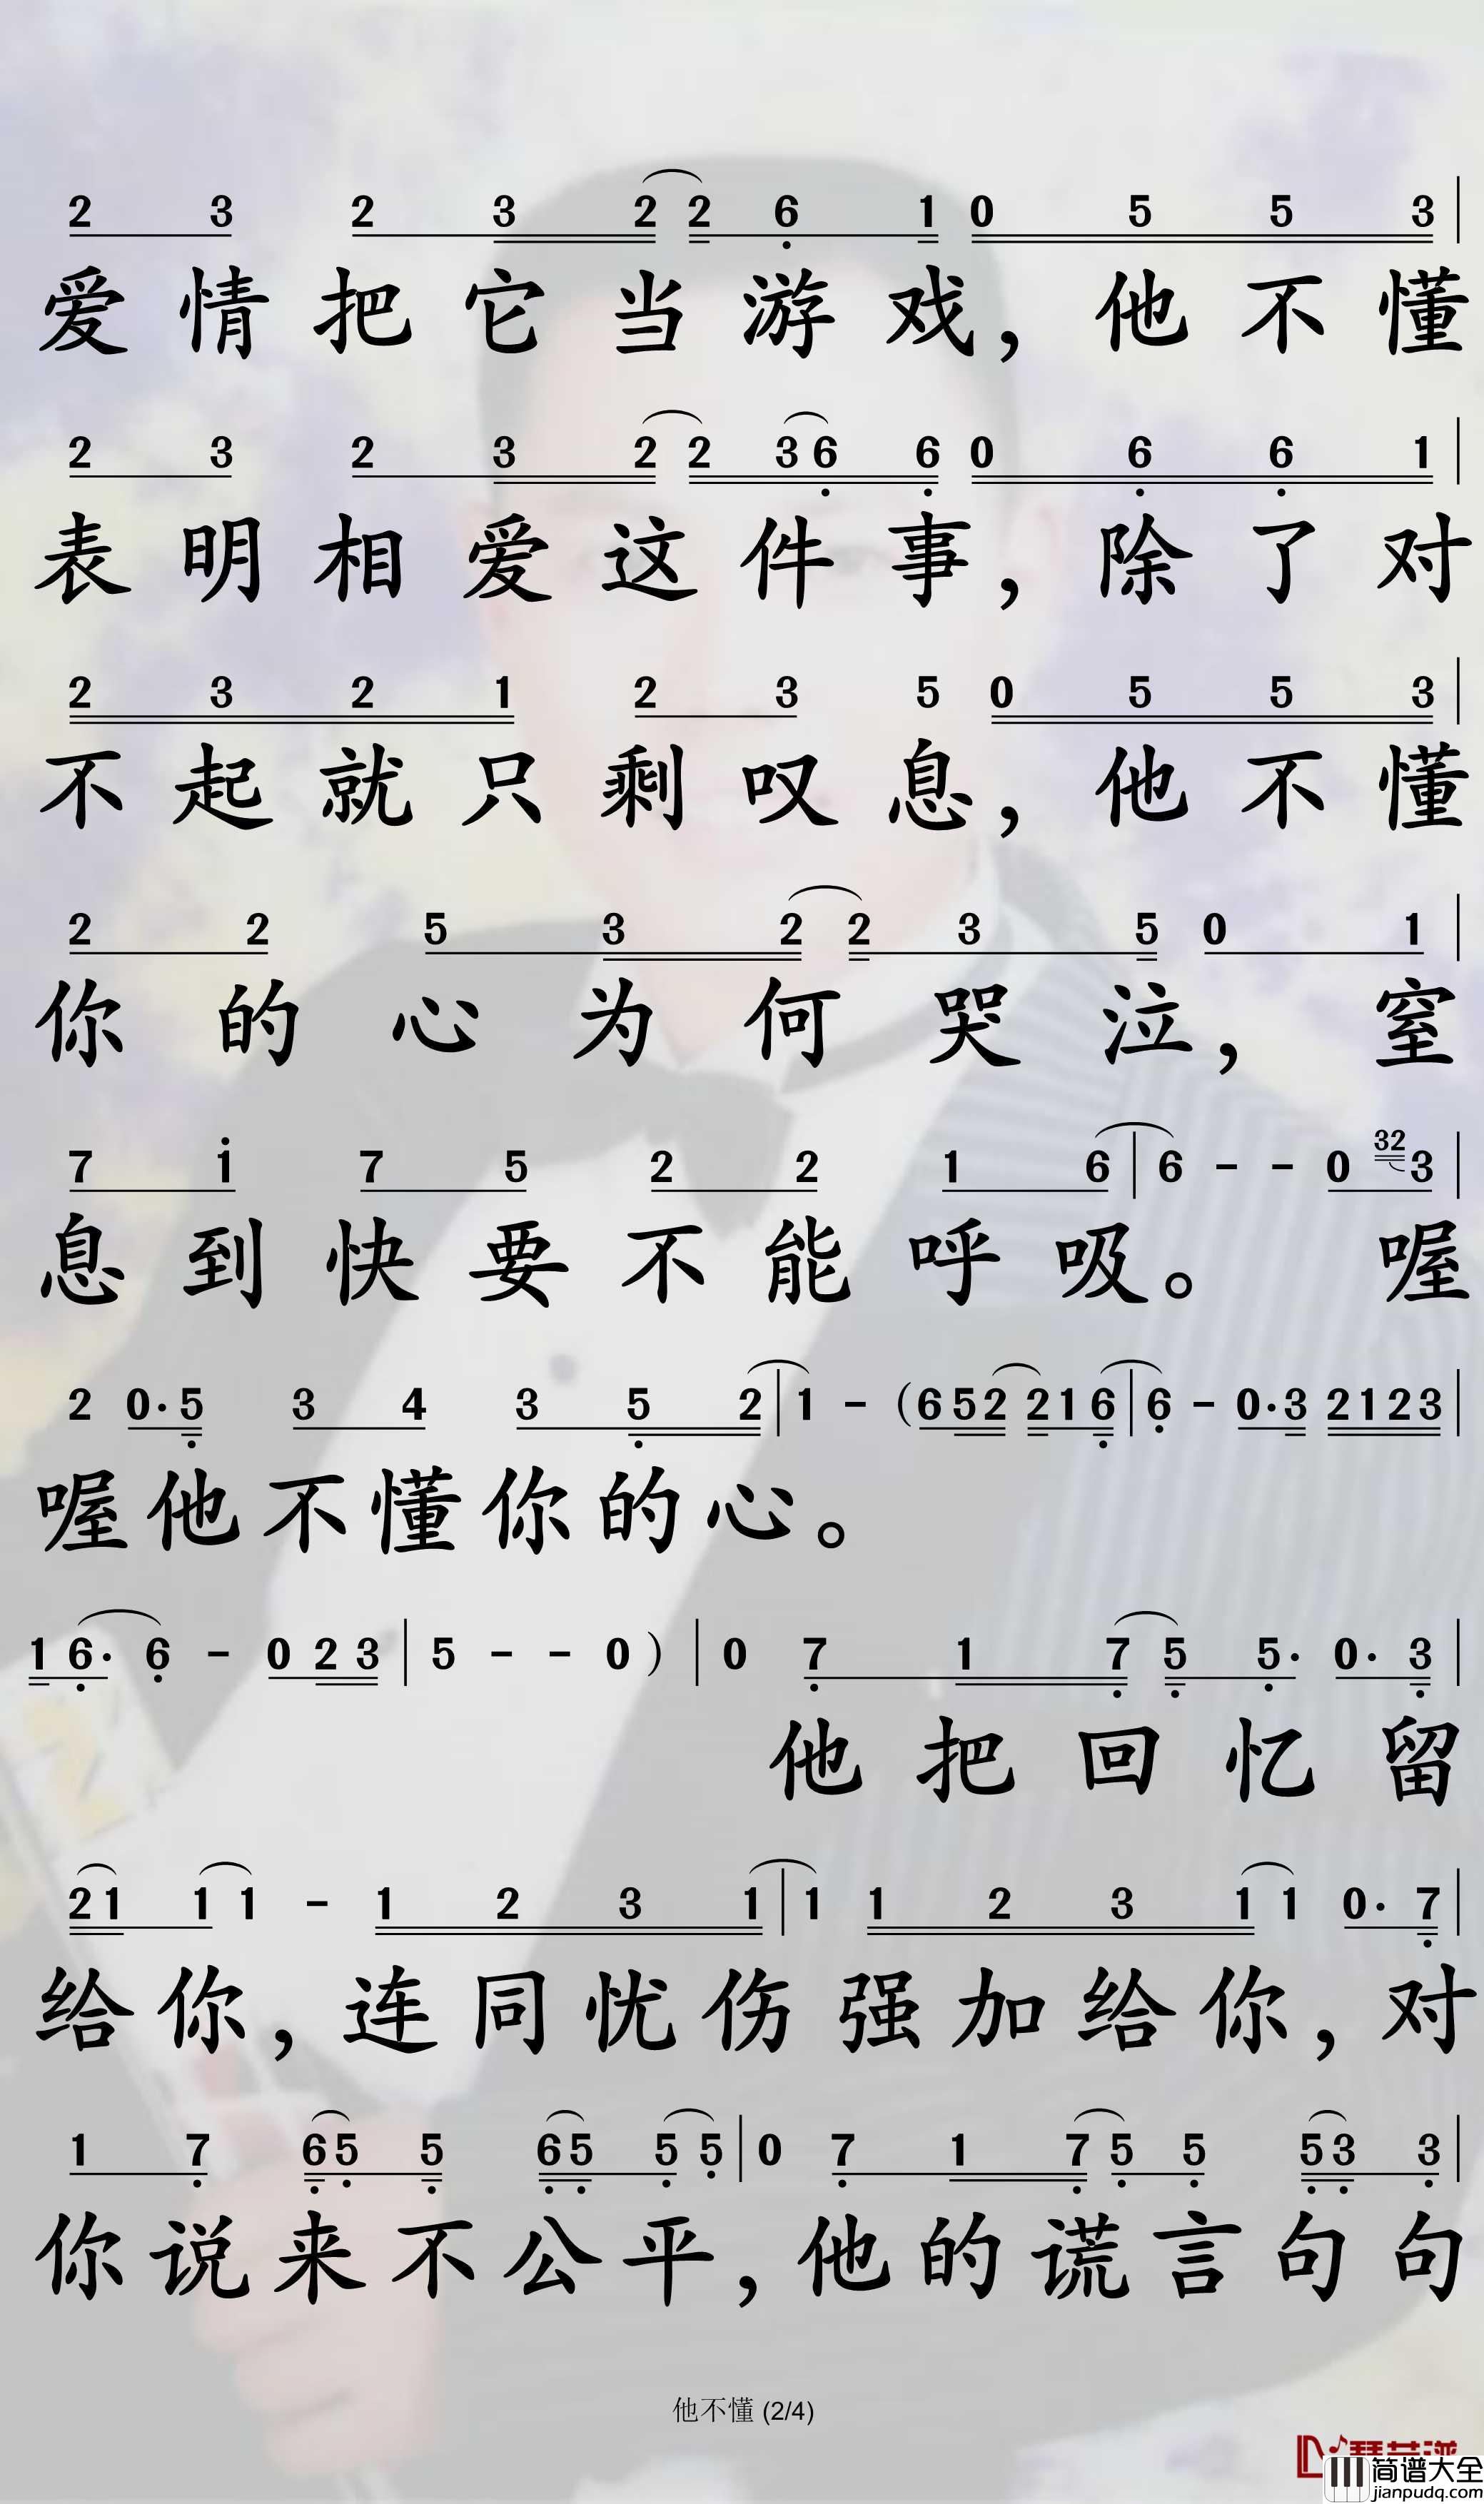 2 3 2 3 2 2 6 1 0 5 5 3
爱情把它当游戏，他不懂
2 3 2 3 2 2 3 6 6 0 6 6 1
表明相爱这件事，除了对
2 3 2 1 2 3 5 0 5 5 3
不起就只剩叹息，他不懂
2 2 5 3 2 2 3 5 0 1
你的心为何哭泣，窒
7 i 7 5 2 2 1 6 | 6 - - 0 32 3
息到快要不能呼吸。 喔
2 0· 5 3 4 3 5 2 | 1 - (6 5 2 2 1 6 | 6 - 0· 3 2 1 2 3
喔他不懂你的心。
1 6· 6 - 0 2 3 | 5 - - 0 ) | 0 7 1 7 5 5· 0· 3
他把回忆留
2 1 1 1 - 1 2 3 1 | 1 1 2 3 1 1 0· 7
给你，连同忧伤强加给你，对
1 7 6 5 5 6 5 5 5 | 0 7 1 7 5 5 5 3 3
你说来不公平，他的谎言句句
他不懂 (2/4)
简谱大全
jianpudq.com